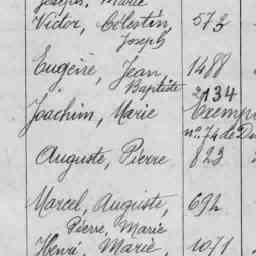 Joseph, Marie
Victor, Célestin, 573
Joseph
Eugène, Jean, 1488
Baptiste
2134
Joachim, Marie Exempt
n° 74 de
Auguste, Pierre 823
Marcel, Auguste, 692
Pierre, Marie
Henri, Marie, 1071